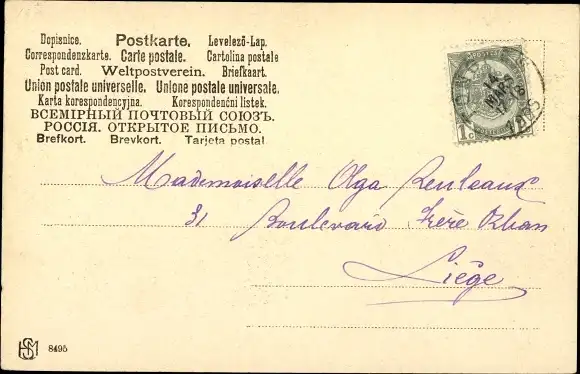 Dopisnice. Postkarte. Levelező-Lap.
Correspondenzkarte. Carte postale. Cartolina postale
Post card. Weltpostverein. Briefkaart.
Union postale universelle. Unione postale universale.
Karta korespondencyjna. Korespondenční lístek.
ВСЕМІРНЫЙ ПОЧТОВЫЙ СОЮЗЪ.
РОССІЯ. ОТКРЫТОЕ ПИСЬМО.
Brefkort. Brevkort. Tarjeta postal
14
MARS
1905
1c
Mademoiselle Olga Reuleaux
31 Boulevard Frère Orban
Liège
8495